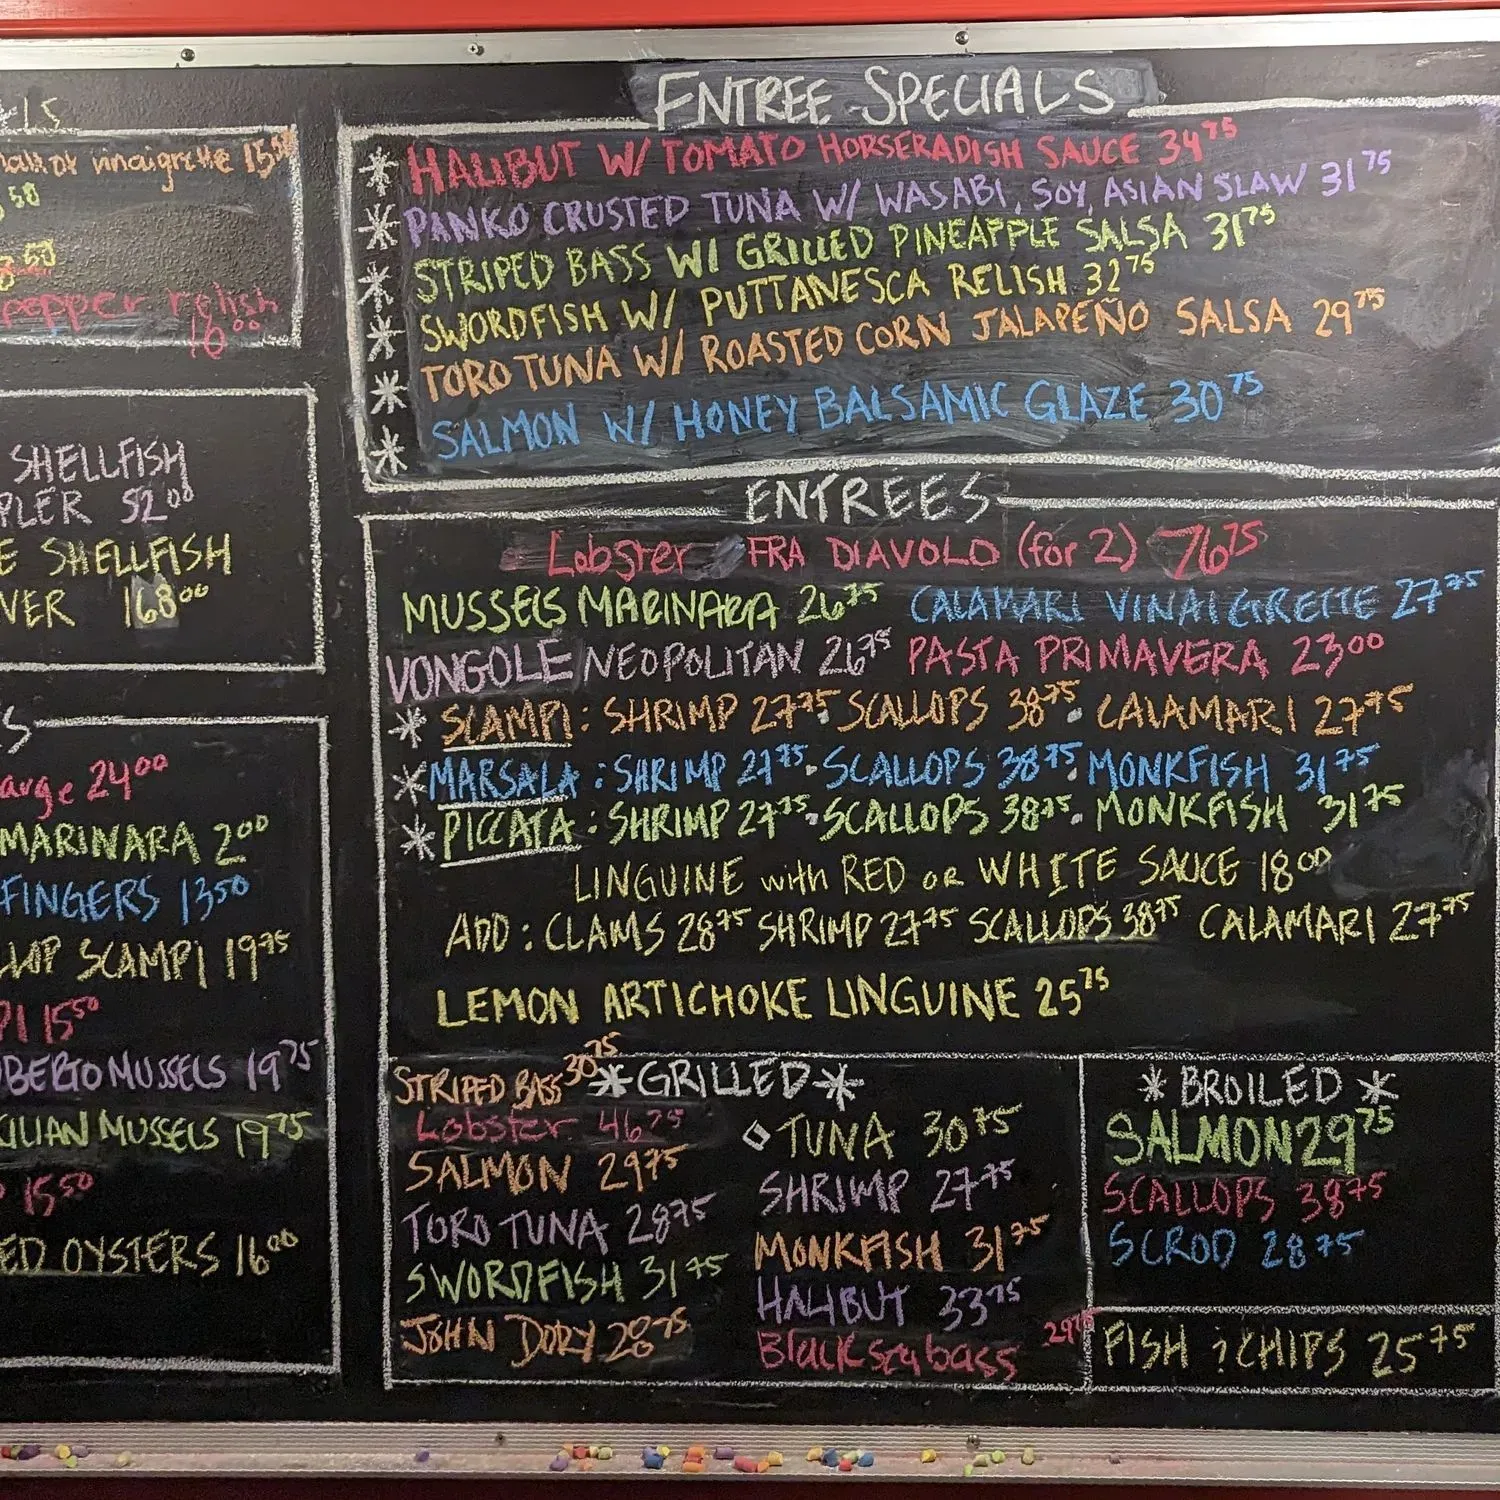 15
vinaigrette 15.50
.50
8.50
pepper relish
16.00
SHELLFISH
PLER 52.00
E SHELLFISH
VER 168.00
S
arge 24.00
MARINARA 2.00
FINGERS 13.50
LLOP SCAMPI 19.75
PI 15.50
OBERTO MUSSELS 19.75
CILIAN MUSSELS 19.75
15.50
ED OYSTERS 16.00
ENTREE SPECIALS
* HALIBUT W/ TOMATO HORSERADISH SAUCE 34.75
* PANKO CRUSTED TUNA W/ WASABI, SOY, ASIAN SLAW 31.75
* STRIPED BASS W/ GRILLED PINEAPPLE SALSA 31.75
* SWORDFISH W/ PUTTANESCA RELISH 32.75
* TORO TUNA W/ ROASTED CORN JALAPEÑO SALSA 29.75
* SALMON W/ HONEY BALSAMIC GLAZE 30.75
ENTREES
Lobster FRA DIAVOLO (for 2) 76.75
MUSSELS MARINARA 26.75 CALAMARI VINAIGRETTE 27.75
VONGOLE NEOPOLITAN 26.75 PASTA PRIMAVERA 23.00
* SCAMPI: SHRIMP 27.75. SCALLOPS 38.75. CALAMARI 27.75
* MARSALA: SHRIMP 27.75. SCALLOPS 38.75. MONKFISH 31.75
* PICCATA: SHRIMP 27.75. SCALLOPS 38.75. MONKFISH 31.75
LINGUINE with RED or WHITE SAUCE 18.00
ADD: CLAMS 28.75 SHRIMP 27.75 SCALLOPS 38.75 CALAMARI 27.75
LEMON ARTICHOKE LINGUINE 25.75
* GRILLED *
STRIPED BASS 30.75
Lobster 46.75
SALMON 29.75
TORO TUNA 28.75
SWORDFISH 31.75
JOHN DORY 28.75
TUNA 30.75
SHRIMP 27.75
MONKFISH 31.75
HALIBUT 33.75
Black sea bass 29.75
* BROILED *
SALMON 29.75
SCALLOPS 38.75
SCROD 28.75
FISH ? CHIPS 25.75